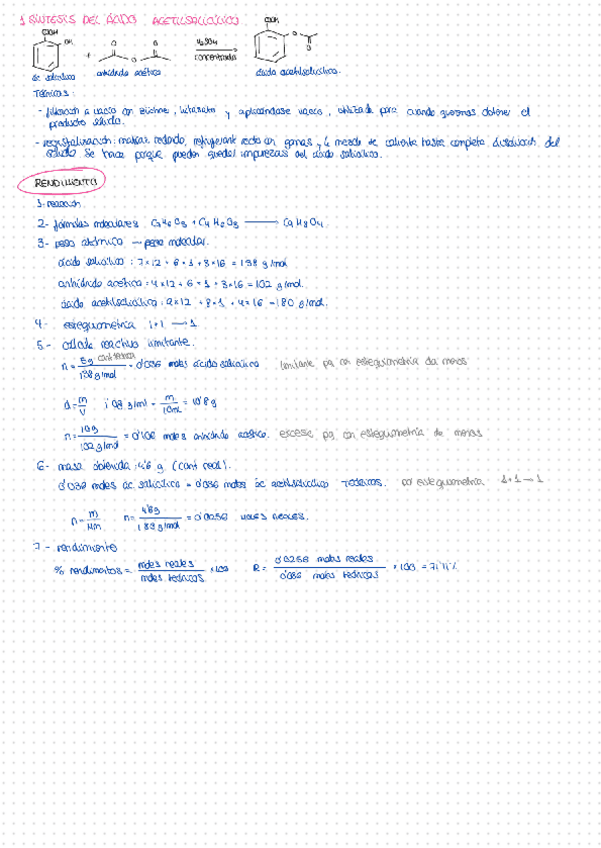 1 SÍNTESIS DEL ÁCIDO ACETILSALICÍLICO
COOH
OH
+
O O
H2SO4
concentrado
COOH
O
ác salicílico
anhídrido acético
ácido acetilsalicílico.
Técnicas:
- filtración a vacío con büchner, kitasato y aplicándose vacío, utilizada para cuando queremos obtener el
producto sólido.
- recristalización: matraz redondo, refrigerante recto con gomas y la mezcla se calienta hasta completa disolución del
sólido. Se hace porque pueden quedar impurezas del ácido salicílico.
RENDIMIENTO
1- reacción
2- fórmulas moleculares C7H6O3 + C4H6O3 → C9H8O4
3- peso atómico → peso molecular.
ácido salicílico: 7×12 + 6×1 + 3×16 = 138 g/mol
anhídrido acético: 4×12 + 6×1 + 3×16 = 102 g/mol.
ácido acetilsalicílico: 9×12 + 8×1 + 4×16 = 180 g/mol.
4- estequiometría 1+1 → 1
5- cálculo reactivo limitante.
n = 5g / 138 g/mol = 0'036 moles ácido salicílico limitante estequiometría da menos
d = m/V 1'08 g/ml = m/10ml = 10'8 g
n = / 102 g/mol = 0'106 moles anhídrido acético. exceso estequiometría de menos
6- masa obtenida: 4'6 g (cant real).
0'036 moles ác. salicílico = 0'036 moles ác acetilsalicílico teóricos. estequiometría 1+1 → 1
n = m/Mm n = 4'6g / g/mol = 0'0256 moles reales.
7- rendimiento
% rendimientos = moles reales / moles teóricos × 100 R = 0'0256 moles reales / 0'036 moles teóricos × 100 = 71'11%